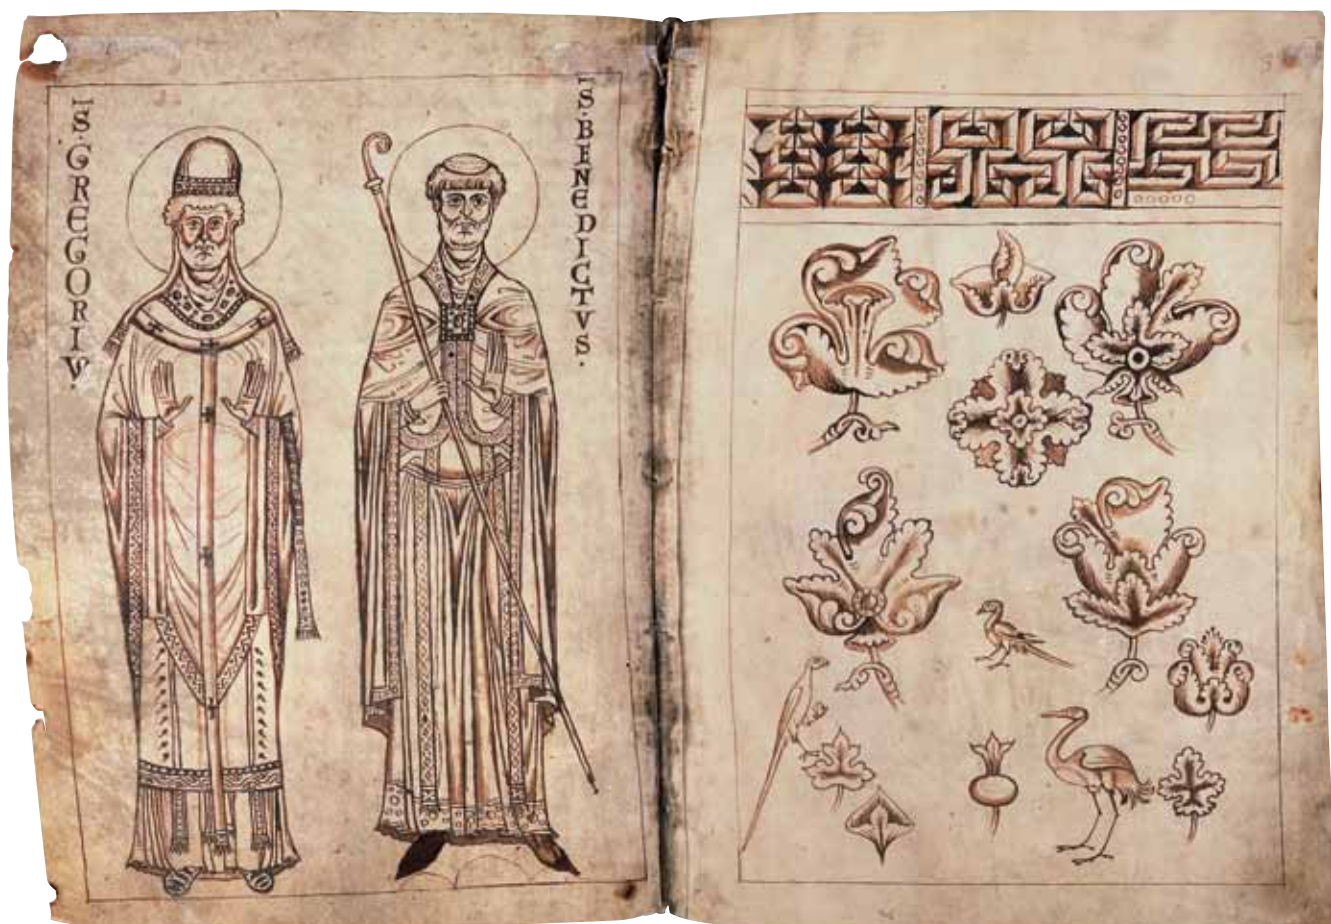 S·GREGORIV
S·BENEDICTVS·